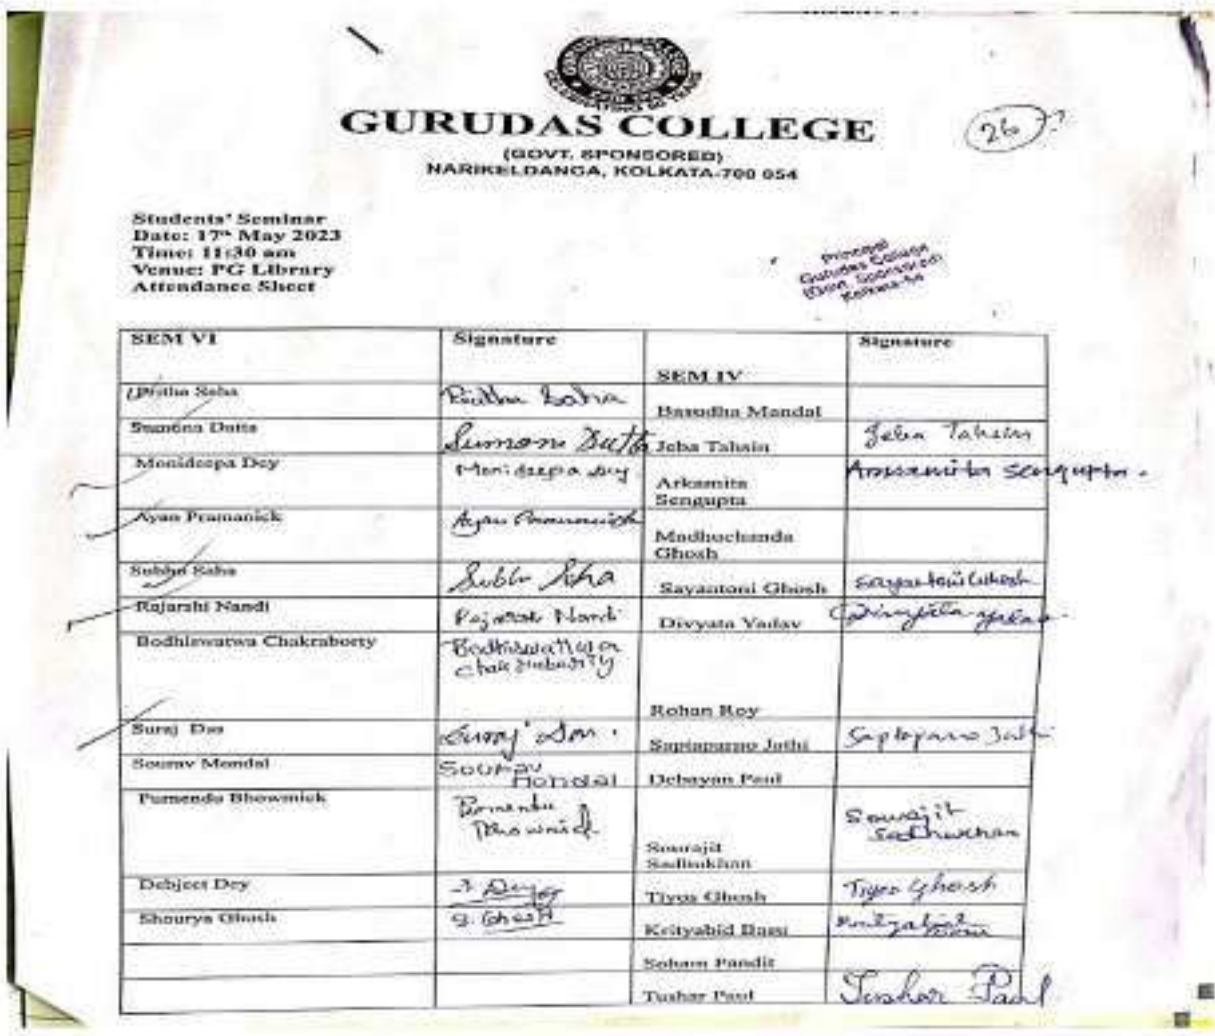 GURUDAS COLLEGE
(GOVT. SPONSORED)
NARIKELDANGA, KOLKATA-700 054
26
Students' Seminar
Date: 17th May 2023
Time: 11:30 am
Venue: PG Library
Attendance Sheet
Principal
Gurudas College
(Govt. Sponsored)
Kolkata-54
SEM VI Signature SEM IV Signature
Pritha Saha Pritha Saha Basudha Mandal
Dutta Sumana Dutta Jeba Tahsin Jeba Tahsin
Monideepa Dey Monideepa Dey Arkamita Sengupta Arkamita Sengupta
Ayan Pramanick Ayan Pramanick Madhuchanda Ghosh
Subhu Saha Saha Sayantoni Ghosh Sayantoni Ghosh
Rajarshi Nandi Rajarshi Nandi Divyata Yadav
Bodhiswatwa Chakraborty Bodhiswattwa Rohan Roy
Suraj Das Suraj Das Saptaparno Jathi Saptaparno Jathi
Sourav Mondal SOURAV MONDAL Debayan Paul
Bhowmick Bhowmick Sourajit Sadhukhan Sourajit Sadhukhan
Debjeet Dey Dey Tiyos Ghosh Tiyos Ghosh
Shourya Ghosh S. Ghosh Krityabid Basu
Soham Pandit
Tushar Paul Tushar Paul